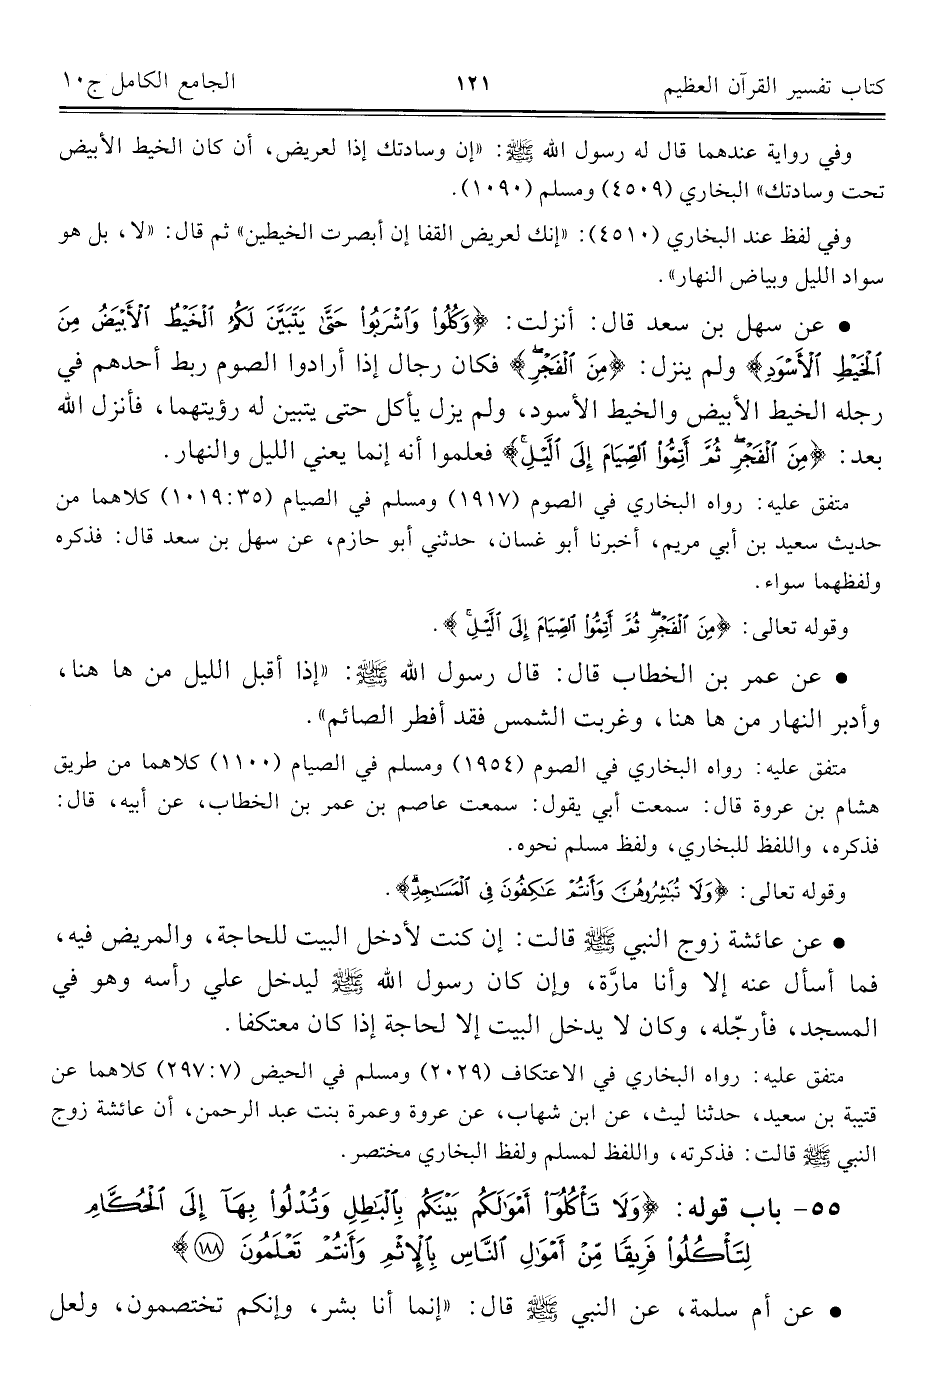 كتاب تفسير القرآن العظيم ١٢١ الجامع الكامل ج١٠
وفي رواية عندهما قال له رسول الله ﷺ: «إن وسادتك إذا لعريض، أن كان الخيط الأبيض
تحت وسادتك» البخاري (٤٥٠٩) ومسلم (١٠٩٠).
وفي لفظ عند البخاري (٤٥١٠): «إنك لعريض القفا إن أبصرت الخيطين» ثم قال: «لا، بل هو
سواد الليل وبياض النهار».
• عن سهل بن سعد قال: أنزلت: ﴿وَكُلُوا۟ وَٱشْرَبُوا۟ حَتَّىٰ يَتَبَيَّنَ لَكُمُ ٱلْخَيْطُ ٱلْأَبْيَضُ مِنَ
ٱلْخَيْطِ ٱلْأَسْوَدِ﴾ ولم ينزل: ﴿مِنَ ٱلْفَجْرِۖ﴾ فكان رجال إذا أرادوا الصوم ربط أحدهم في
رجله الخيط الأبيض والخيط الأسود، ولم يزل يأكل حتى يتبين له رؤيتهما، فأنزل الله
بعد: ﴿مِنَ ٱلْفَجْرِۖ ثُمَّ أَتِمُّوا۟ ٱلصِّيَامَ إِلَى ٱلَّيْلِۚ﴾ فعلموا أنه إنما يعني الليل والنهار.
متفق عليه: رواه البخاري في الصوم (١٩١٧) ومسلم في الصيام (١٠١٩:٣٥) كلاهما من
حديث سعيد بن أبي مريم، أخبرنا أبو غسان، حدثني أبو حازم، عن سهل بن سعد قال: فذكره
ولفظهما سواء.
وقوله تعالى: ﴿مِنَ ٱلْفَجْرِۖ ثُمَّ أَتِمُّوا۟ ٱلصِّيَامَ إِلَى ٱلَّيْلِۚ﴾.
• عن عمر بن الخطاب قال: قال رسول الله ﷺ: «إذا أقبل الليل من ها هنا،
وأدبر النهار من ها هنا، وغربت الشمس فقد أفطر الصائم».
متفق عليه: رواه البخاري في الصوم (١٩٥٤) ومسلم في الصيام (١١٠٠) كلاهما من طريق
هشام بن عروة قال: سمعت أبي يقول: سمعت عاصم بن عمر بن الخطاب، عن أبيه، قال:
فذكره، واللفظ للبخاري، ولفظ مسلم نحوه.
وقوله تعالى: ﴿وَلَا تُبَٰشِرُوهُنَّ وَأَنتُمْ عَٰكِفُونَ فِى ٱلْمَسَٰجِدِۗ﴾.
• عن عائشة زوج النبي ﷺ قالت: إن كنت لأدخل البيت للحاجة، والمريض فيه،
فما أسأل عنه إلا وأنا مارَّة، وإن كان رسول الله ﷺ ليدخل علي رأسه وهو في
المسجد، فأرجّله، وكان لا يدخل البيت إلا لحاجة إذا كان معتكفا.
متفق عليه: رواه البخاري في الاعتكاف (٢٠٢٩) ومسلم في الحيض (٢٩٧:٧) كلاهما عن
قتيبة بن سعيد، حدثنا ليث، عن ابن شهاب، عن عروة وعمرة بنت عبد الرحمن، أن عائشة زوج
النبي ﷺ قالت: فذكرته، واللفظ لمسلم ولفظ البخاري مختصر.
٥٥- باب قوله: ﴿وَلَا تَأْكُلُوٓا۟ أَمْوَٰلَكُم بَيْنَكُم بِٱلْبَٰطِلِ وَتُدْلُوا۟ بِهَآ إِلَى ٱلْحُكَّامِ
لِتَأْكُلُوا۟ فَرِيقًا مِّنْ أَمْوَٰلِ ٱلنَّاسِ بِٱلْإِثْمِ وَأَنتُمْ تَعْلَمُونَ ١٨٨﴾
• عن أم سلمة، عن النبي ﷺ قال: «إنما أنا بشر، وإنكم تختصمون، ولعل